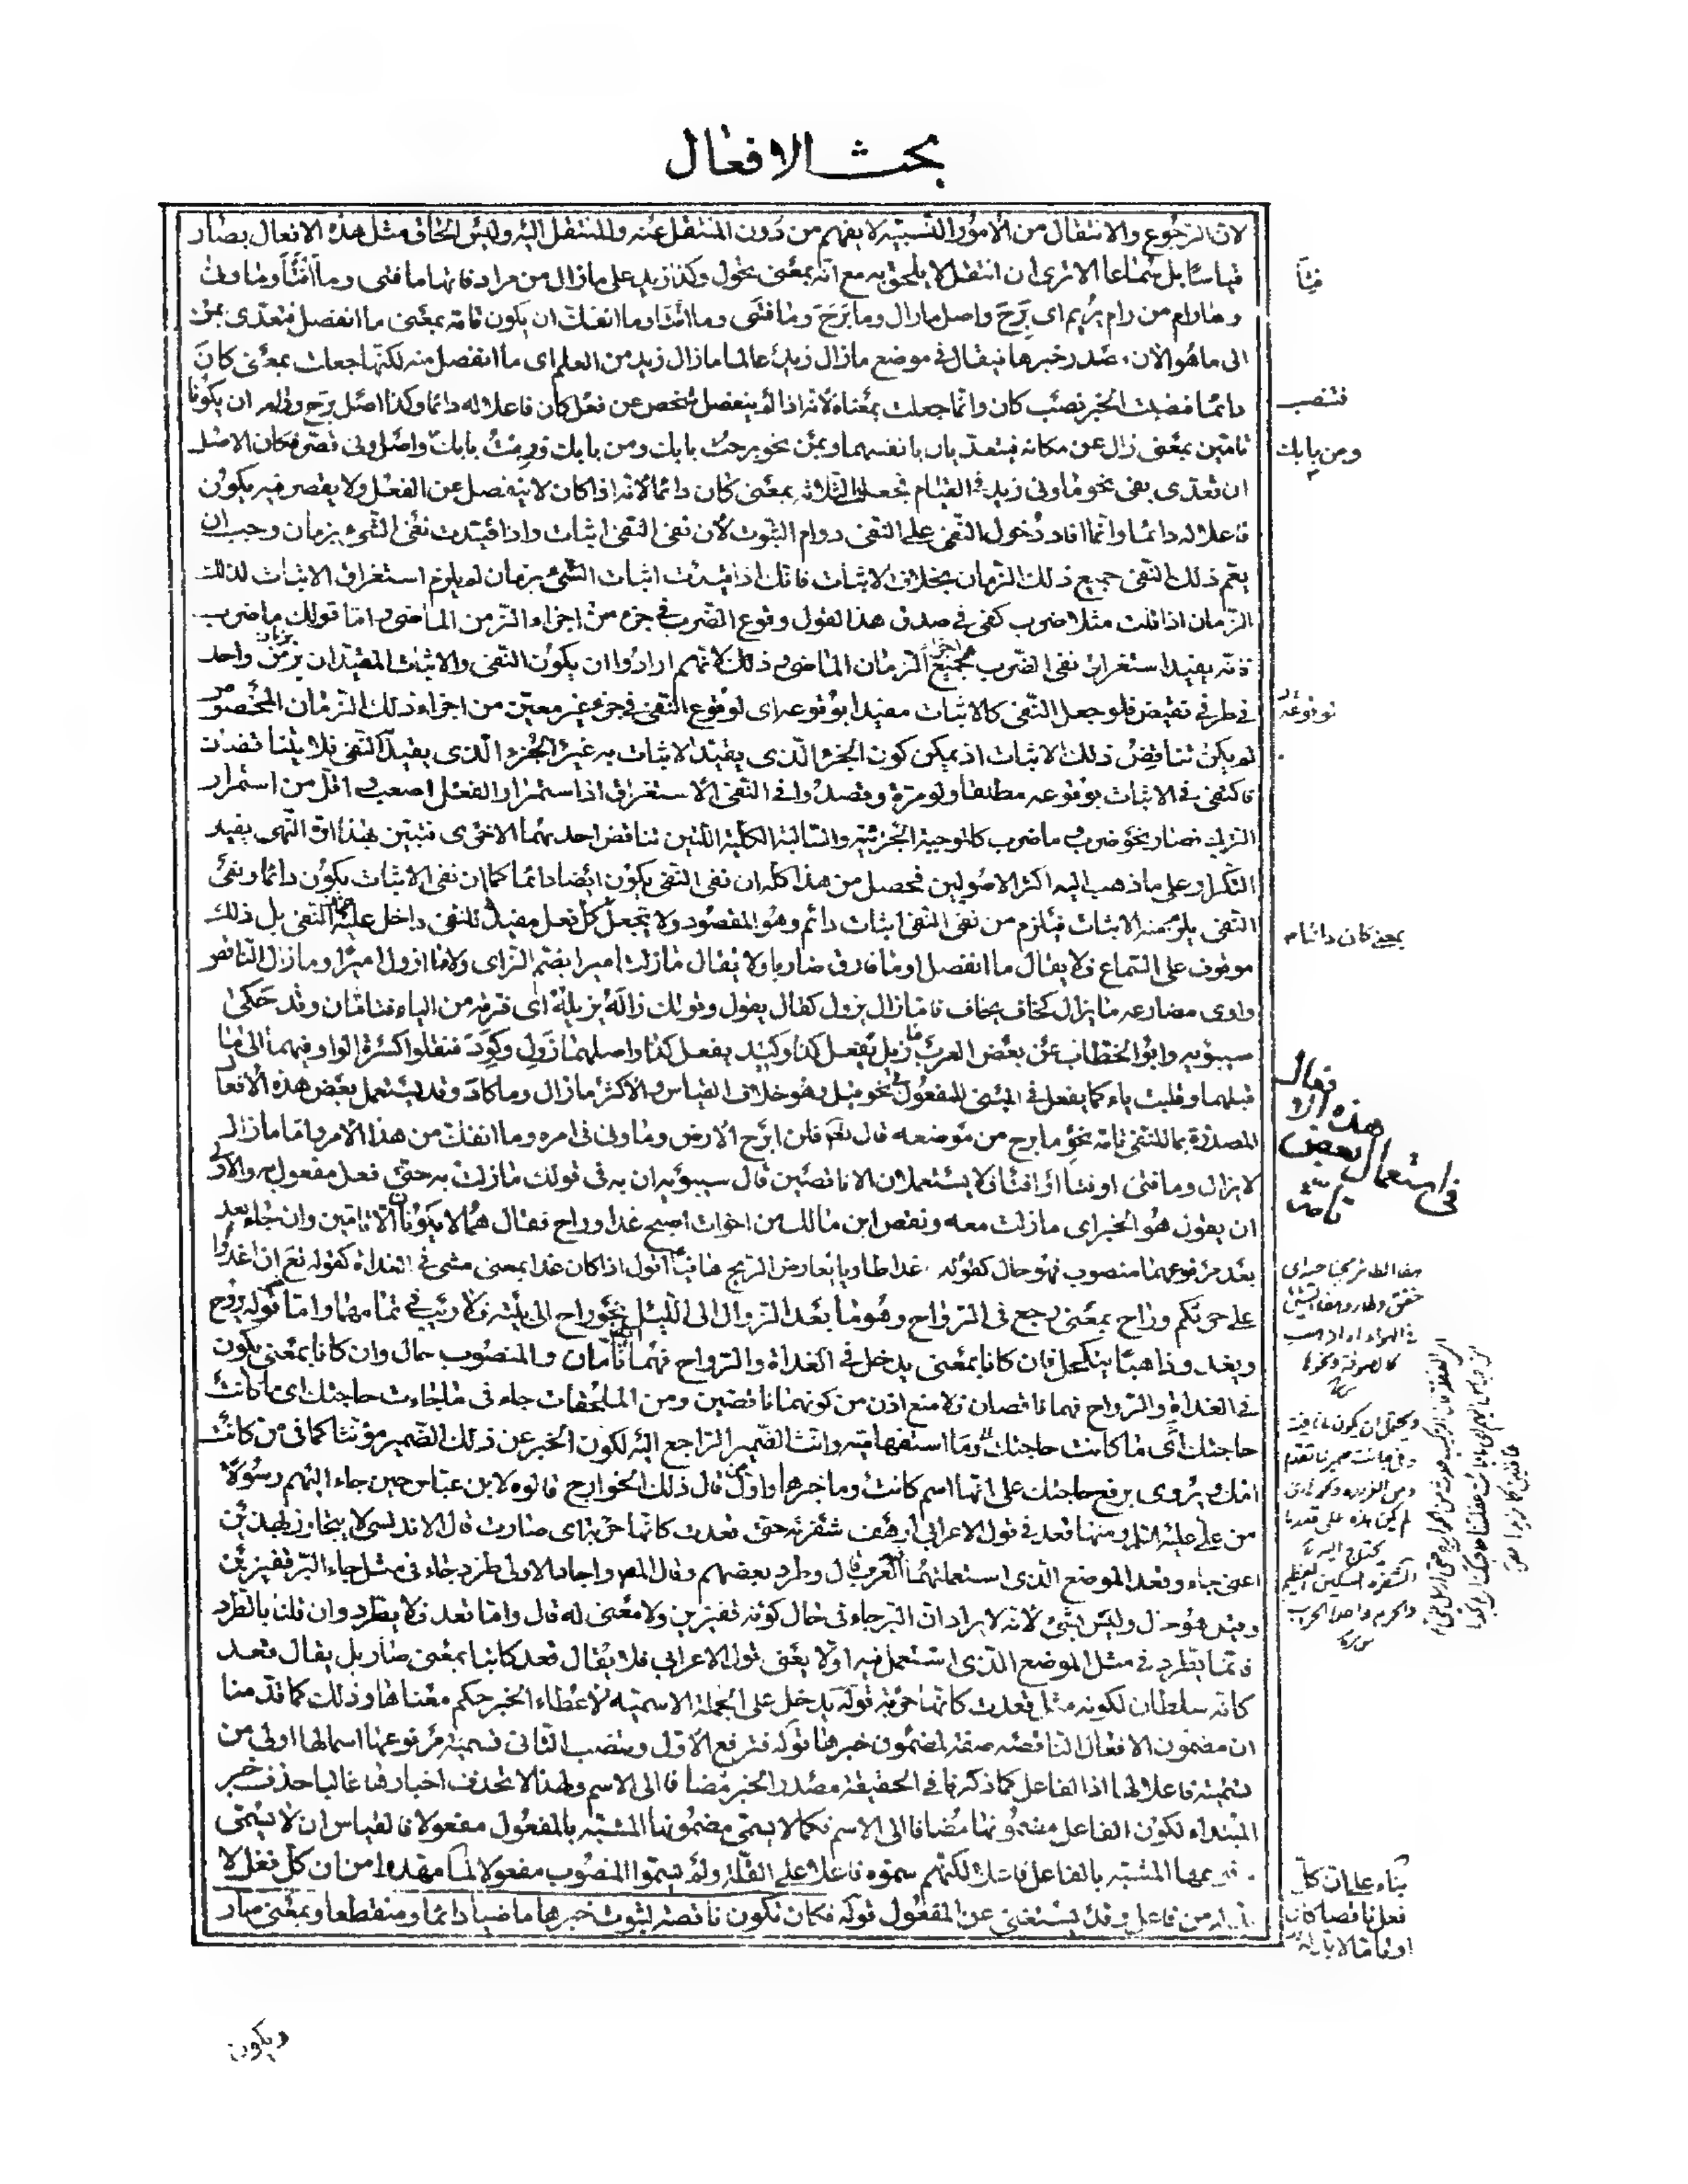 بحث الافعال
لان الرجوع والانتقال من الأمور النسبية لا يفهم من دون المنتقل عنه والمنتقل اليه وليس الحاق مثل هذه الافعال بصار
قياسا بل سماعا الا ترى ان انتقل لا يلحق به مع انه بمعنى تحول وكذا زيد على مازال من مرادفاتها ما فتئ وما أفتأ وما ونى
وما رام من رام يريم اى برح واصل مازال وما برح وما فتئ وما افتأ وما انفك ان يكون تامة بمعنى ما انفصل فتعدى بمن
الى ما هو الآن مصدر خبرها فيقال فى موضع مازال زيد عالما مازال زيد من العلم اى ما انفصل منه لكنها جعلت بمعنى كان
دائما فنصبت الخبر نصب كان وانما جعلت بمعناه لانه اذا لم ينفصل شخص عن فعل كان فاعلا له دائما وكذا اصل برح ورام ان يكونا
تامين بمعنى زال عن مكانه فيتعديان بانفسهما وبمن نحو برحت بابك ومن بابك ورمت بابك واصل ونى قصر فكان الاصل
ان تعدى بفى نحو ما ونى زيد فى القيام فجعل الثلاثة بمعنى كان دائما لانه اذا كان لا ينفصل عن الفعل ولا يقصر فيه يكون
فاعلا له دائما وانما افاد دخول النفى على النفى دوام الثبوت لان نفى النفى اثبات واذا قيدت نفى الشئ بزمان وجب ان
يعم ذلك النفى جميع ذلك الزمان بخلاف الاثبات فانك اذا قيدت اثبات الشئ بزمان لم يلزم استغراق الاثبات لذلك
الزمان اذا قلت مثلا ضرب كفى فى صدق هذا القول وقوع الضرب فى جزء من اجزاء الزمن الماضى واما قولك ما ضرب
فانه يفيد استغراق نفى الضرب لجميع اجزاء الزمان الماضى وذلك لانهم ارادوا ان يكون النفى والاثبات المقيدان بزمن واحد
فى طرفى نقيض فلو جعل النفى كالاثبات مقيدا بوقوعه اى لوقوع النفى فى جزء غير معين من اجزاء ذلك الزمان المخصوص
لم يكن تناقض ذلك الاثبات اذ يمكن كون الجزء الذى يقيد الاثبات به غير الجزء الذى يقيد النفى فلا يتناقضان
فاكتفى فى الاثبات بوقوعه مطلقا ولو مرة وقصدوا فى النفى الاستغراق اذ استمرار الفعل اصعب واقل من استمرار
الترك فصار نحو ضرب وما ضرب كالموجبة الجزئية والسالبة الكلية اللتين تناقض احديهما الاخرى فتبين بهذا ان النهى يفيد
التكرار على ما ذهب اليه اكثر الاصوليين فحصل من هذا كله ان نفى النفى يكون ايضا دائما كما ان نفى الاثبات يكون دائما ونفى
النفى يلزمه الاثبات فيلزم من نفى النفى اثبات دائم وهو المقصود ولا تجعل كل فعل مفيد للنفى داخل عليه النفى بل ذلك
موقوف على السماع فلا يقال ما انفصل او ما فارق ضاربا ولا يقال مازلت اميرا بضم الزاى ولا ما ازول اميرا ومازال الناقص
واوى مضارعه ما يزال كخاف يخاف فاما زال يزول كقال يقول وقولك زاله يزيله اى فرقه من الياء فتامان وقد حكى
سيبويه وابو الخطاب عن بعض العرب ما زيل يفعل كذا وكيد يفعل كذا واصلهما زول وكود فنقلوا كسرة الواو فيهما الى ما
قبلهما وقلبت ياء كما يفعل فى المبنى للمفعول نحو قيل وهو خلاف القياس والاكثر مازال وما كاد وقد يستعمل بعض هذه الافعال
المصدرة بما للنفى تامة نحو ما برح من موضعه قال تعالى فلن ابرح الارض وما ونى فى امره وما انفك من هذا الامر واما مازال
لا يزال وما فتئ او فتأ او افتأ فلا يستعملان الا ناقصين قال سيبويه ان به فى قولك مازلت به حتى فعل مفعول به والاولى
ان يقول هو الخبر اى مازلت معه ونقص ابن مالك من اخوات اصبح غدا وراح فقال هما لا يكونان الا تامين وان جاء بعد
بعد مرفوعهما منصوب فهو حال كقوله غدا طاويا يعارض الريح هافيا اقول اذا كان غدا بمعنى مشى فى الغداة كقوله تع ان اغدوا
على حرثكم وراح بمعنى رجع فى الرواح وهو ما بعد الزوال الى الليل نحو راح الى بيته فلا ريب فى تمامهما واما قوله يروح
ويغدو وذاهبا يتكحل فان كانا بمعنى يدخل فى الغداة والرواح فهما تامان والمنصوب حال وان كانا بمعنى يكون
فى الغداة والرواح فهما ناقصان فلا منع اذن من كونهما ناقصين ومن الملحقات جاء فى ما جاءت حاجتك اى ما كانت
حاجتك اى ما كانت حاجتك وما استفهامية وانث الضمير الراجع اليه لكون الخبر عن ذلك الضمير مؤنثا كما فى من كانت
امك ويروى برفع حاجتك على انها اسم كانت وما خبرها واول من قال ذلك الخوارج قالوه لابن عباس حين جاء اليهم رسولا
من على عليه السلام ومنها قعد فى قول الاعرابى ارهف شفرته حتى قعدت كانها حربة اى صارت قال الاندلسى لا يتجاوز بهذين
اعنى جاء وقعد الموضع الذى استعملتهما العرب فيه وطرد بعضهم وقال المص واجاد الاولى طرد جاء فى مثل جاء البر قفيزين
وقيل هو حال وليس بشئ لانه لا يراد ان البر جاء فى حال كونه قفيزين ولا معنى له قال واما قعد فلا يطرد وان قلنا بالطرد
فانما يطرد فى مثل الموضع الذى استعمل فيه اولا يعنى قول الاعرابى فلا يقال قعد كاتبا بمعنى صار بل يقال قعد
كانه سلطان لكونه مثل قعدت كانها حربة قوله يدخل على الجملة الاسمية لاعطاء الخبر حكم معناها وذلك كما قدمنا
ان مضمون الافعال الناقصة صفة لمضمون خبرها قوله فترفع الاول وينصب الثانى تسمية مرفوعها اسما لها اولى من
تسميته فاعلا لها اذ الفاعل كما ذكرنا فى الحقيقة مصدر الخبر مضافا الى الاسم ولهذا لا تحذف اخبارها غالبا حذف خبر
المبتداء لكون الفاعل مضمونها مضافا الى الاسم فكما لا يسمى منصوبها المشبه بالمفعول مفعولا فالقياس ان لا يسمى
مرفوعها المشبه بالفاعل فاعلا لكنهم سموه فاعلا على القلة ولم يسموا المنصوب مفعولا لما مهدوا من ان كل فعل لا
بد له من فاعل وقد يستغنى عن المفعول قوله فكان تكون ناقصة لثبوت خبرها ماضيا دائما ومنقطعا وبمعنى صار
ويكون
فتأ
فتنصب
ومن بابك
لوقوعه
بمعنى كان دائما م
فى استعمال بعض
هذه الافعال
تامة
بناء على ان كل
فعل ناقصا كان
او تاما لا بد له